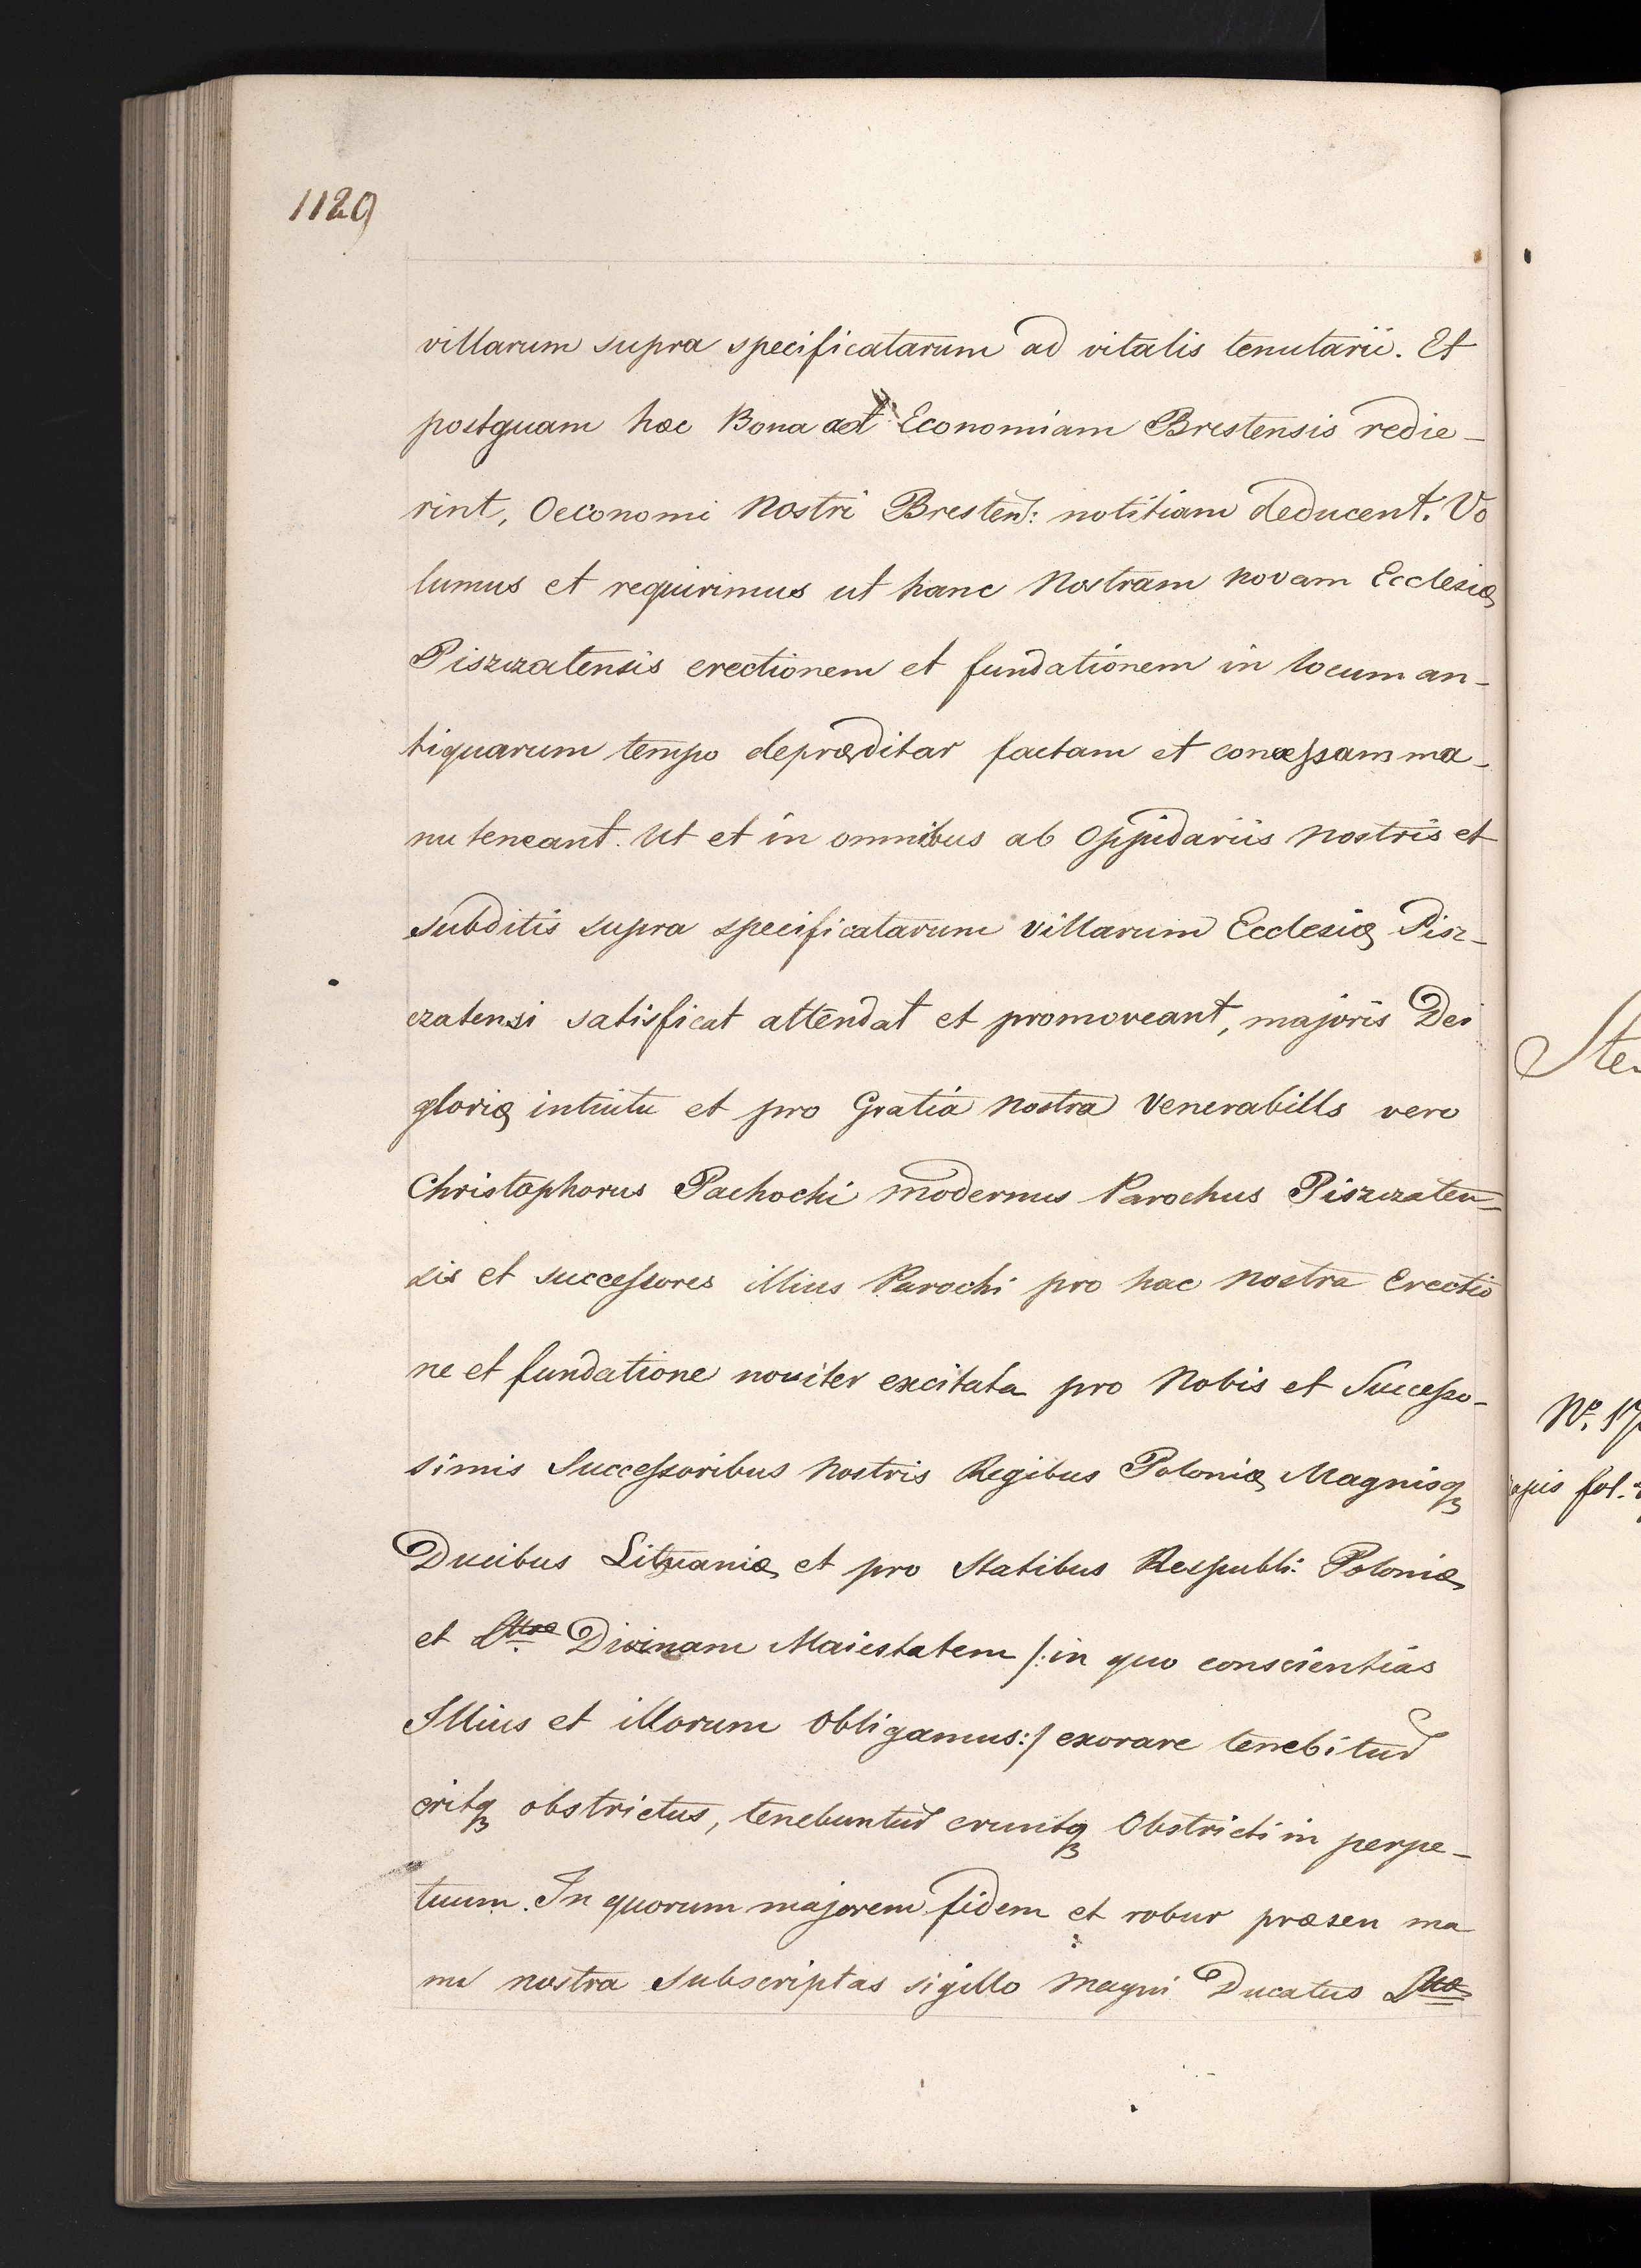 1129
villarum supra specificatarum ad vitalis tenutarii. Et
postquam hæc Bona ad Economiam Brestensis redie-
rint, Oeconomi Nostri Bresten: notitiam deducent. Vo
lumus et requirimus ut hanc Nostram novam Ecclesiæ
Piszczatensis erectionem et fundationem in locum an-
tiquarum tempo deprædit​ar factam et concessam ma-
nu teneant. Ut et in omnibus ab Oppidariis Nostris et
subditis supra specificatarum villarum Ecclesiæ Pisz-
czatensi satisficat attendat et promoveant, majoris Dei
gloriæ intuitu et pro Gratia Nostra Venerabills vero
Christophorus Pachochi modernus Parochus Piszczaten=
sis et successores illius Parochi pro hac Nostra Erectio
ne et fundatione noviter excitata pro Nobis et Successo-
simis Successoribus Nostris Regibus Poloniæ Magnisq
Ducibus Lituaniæ et pro Statibus Respubli: Poloniæ
et Divinam Maiestatem /: in quo conscientias
Illius et illorum Obligamus:/ exorare tenebitur
eritq obstrictus, tenebuntur eruntq Obstricti in perpe-
tuum. In quorum majorem fidem et robur præsen ma
nu nostra subscriptas sigillo Magni Ducatus
Ste
No. 17
fol.